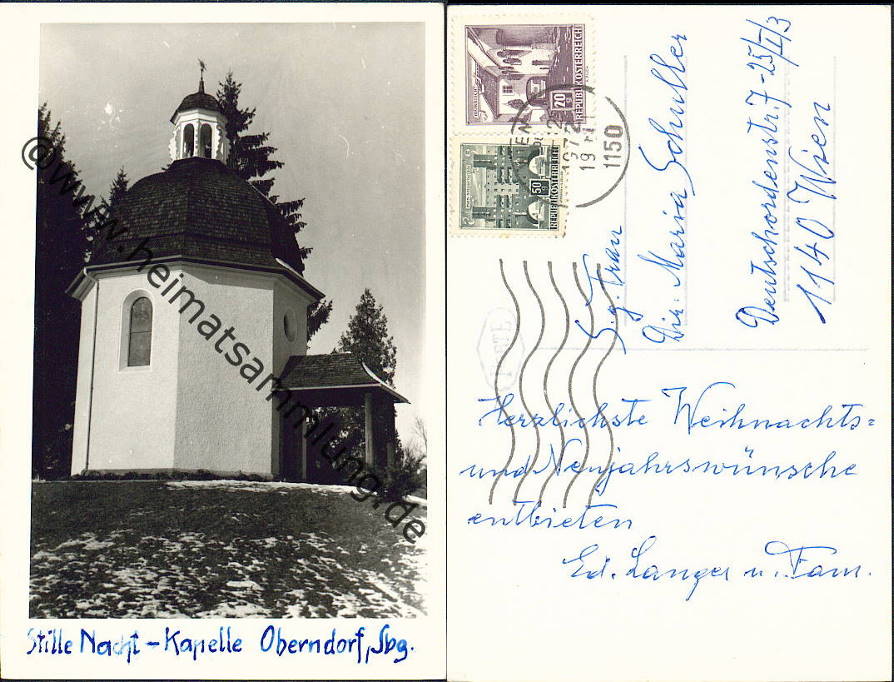 @www.heimatsammlung.de
Stille Nacht - Kapelle Oberndorf, Sbg.
70
REPUBLIK ÖSTERREICH
50
REPUBLIK ÖSTERREICH
WIEN
1972
1150
S.g. Frau
Dir. Maria Schuller
Deutschordenstr. 7-25/I/3
1140 Wien
Herzlichste Weihnachts=
und Neujahrswünsche
entbieten
Ed. Langer u. Fam.